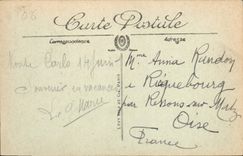 Carte Postale
Correspondance
Adresse
Monte Carlo 14 juin
Souvenir en vacances
Le Marie
Mme Anna Randon
Ricquebourg
par Ressons sur Matz
Oise
France